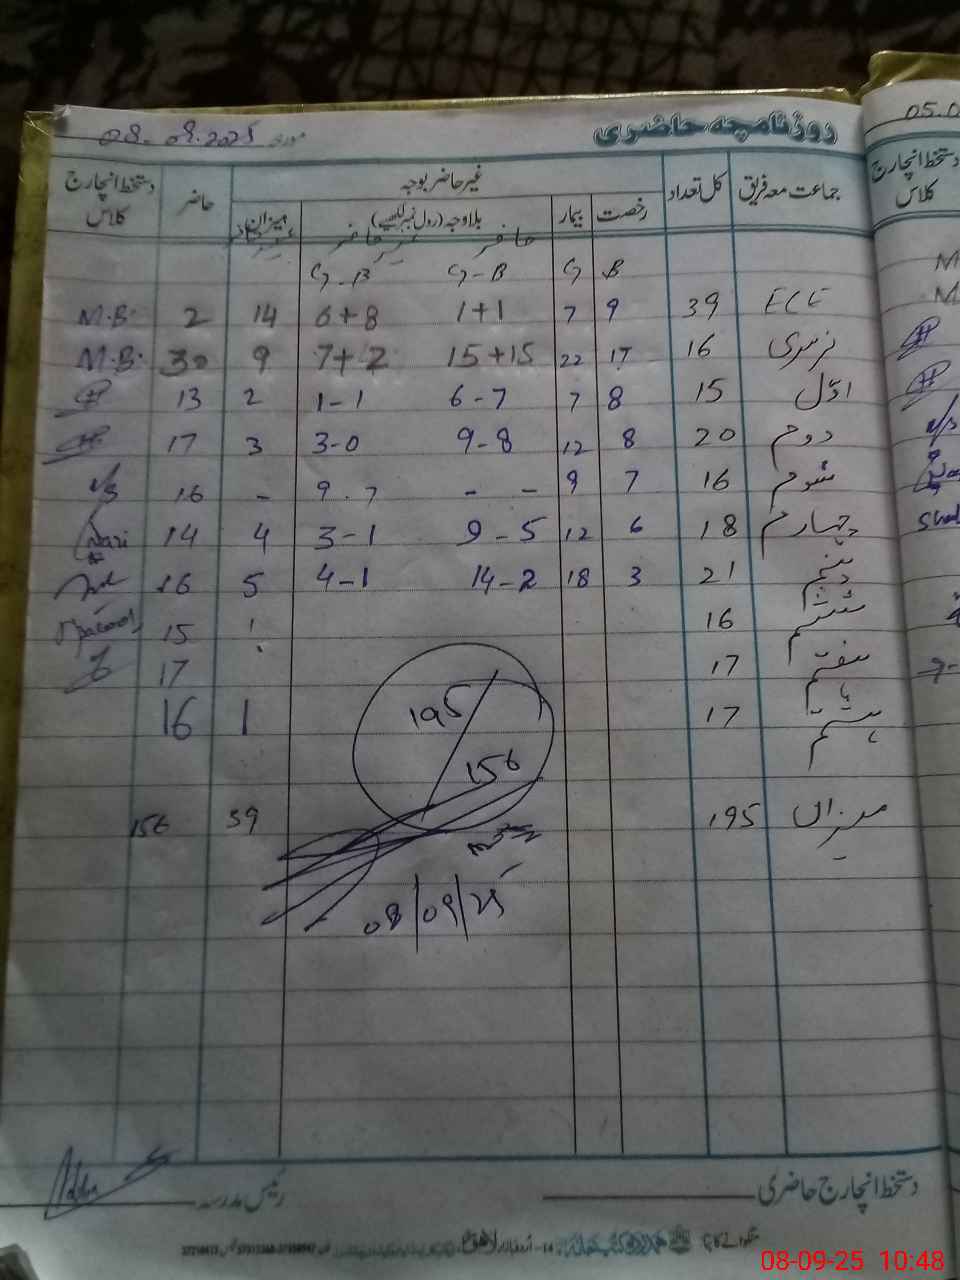 روزنامچہ حاضری مورخہ 08.09.2025
05.0
جماعت معہ فریق کل تعداد غیر حاضر بوجہ حاضر دستخط انچارج کلاس
رخصت بیمار بلاوجہ (رول نمبر لکھیے) میزان
حاضر غیر حاضر
B G G-B G-B
ECE 39 9 7 1+1 6+8 14 2 M.B.
نرسری 16 17 22 15+15 7+2 9 30 M.B.
اوّل 15 8 7 6-7 1-1 2 13
دوم 20 8 12 9-8 3-0 3 17
سوم 16 7 9 - - 9.7 - 16
چہارم 18 6 12 9-5 3-1 4 14
پنجم 21 3 18 14-2 4-1 5 16
ششم 16 1 15
ہفتم 17 17
ہشتم 17 1 16
195/156
میزان 195 39 156
08/09/25
دستخط انچارج حاضری رئیس مدرسہ
08-09-25 10:48